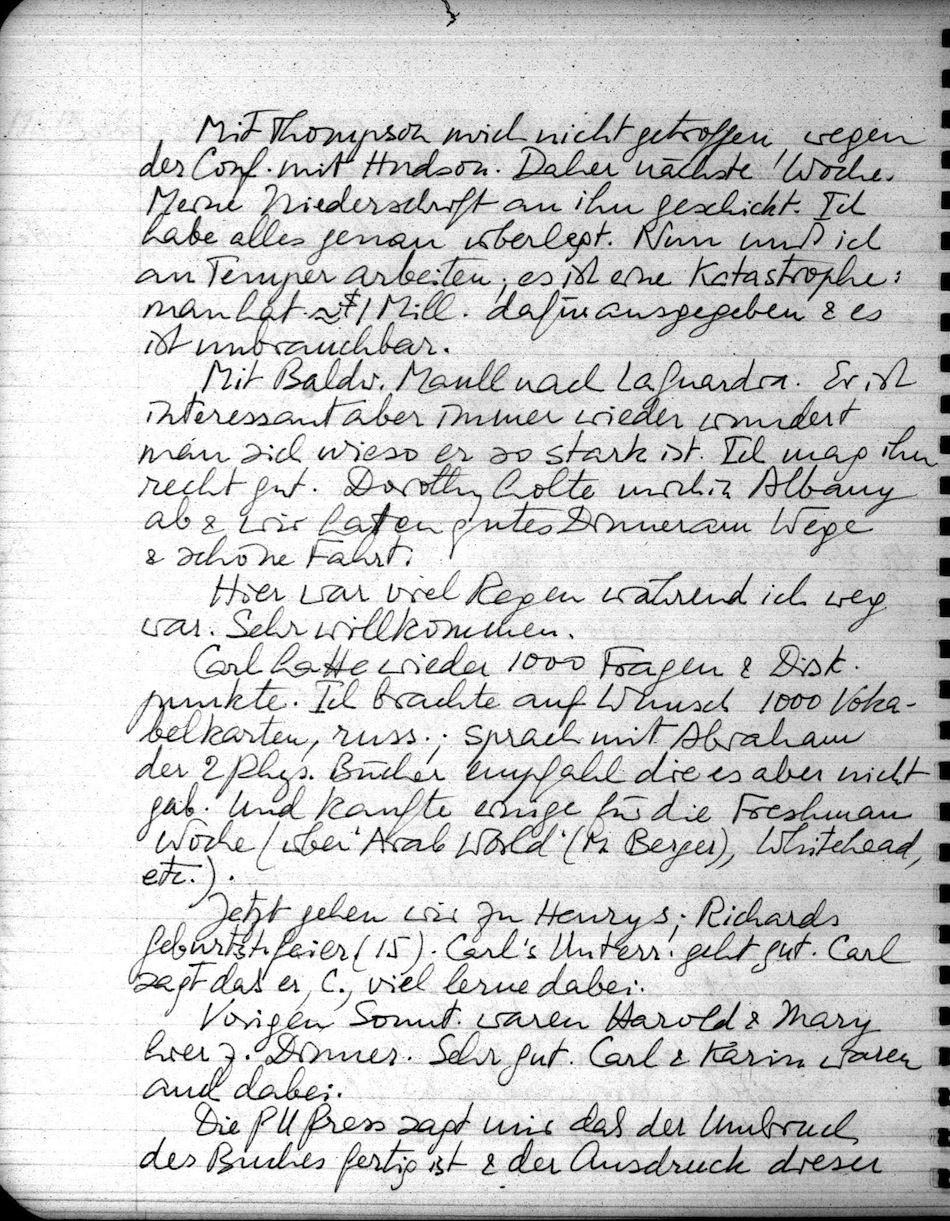 Mit Thompson mich nicht getroffen wegen
der Conf. mit Hudson. Daher nächste Woche.
Meine Niederschrift an ihn geschickt. Ich
habe alles genau überlegt. Nun muß ich
an Temper arbeiten; es ist eine Katastrophe:
man hat ~ $1 Mill. dafür ausgegeben & es
ist unbrauchbar.
Mit Baldw. Maull nach LaGuardia. Er ist
interessant aber immer wieder wundert
man sich wieso er so stark ist. Ich mag ihn
recht gut. Dorothy holte mich in Albany
ab & wir hatten gutes Dinner am Wege
& schöne Fahrt.
Hier war viel Regen während ich weg
war. Sehr willkommen.
Carl hatte wieder 1000 Fragen & Disk.
punkte. Ich brachte auf Wunsch 1000 Voka-
belkarten, russ.; sprach mit Abraham
der 2 Phys. Bücher empfahl die es aber nicht
gab. Und kaufte einige für die Freshman
Woche (über 'Arab World' (M. Berger), Whitehead,
etc.).
Jetzt gehen wir zu Henrys; Richards
Geburtst.feier (15). Carl's Unterr. geht gut. Carl
sagt daß er, C., viel lerne dabei.
Vorigen Sonnt. waren Harold & Mary
hier z. Dinner. Sehr gut. Carl & Karin waren
auch dabei.
Die PU Press sagt mir daß der Umbruch
des Buches fertig ist & der Ausdruck dieser